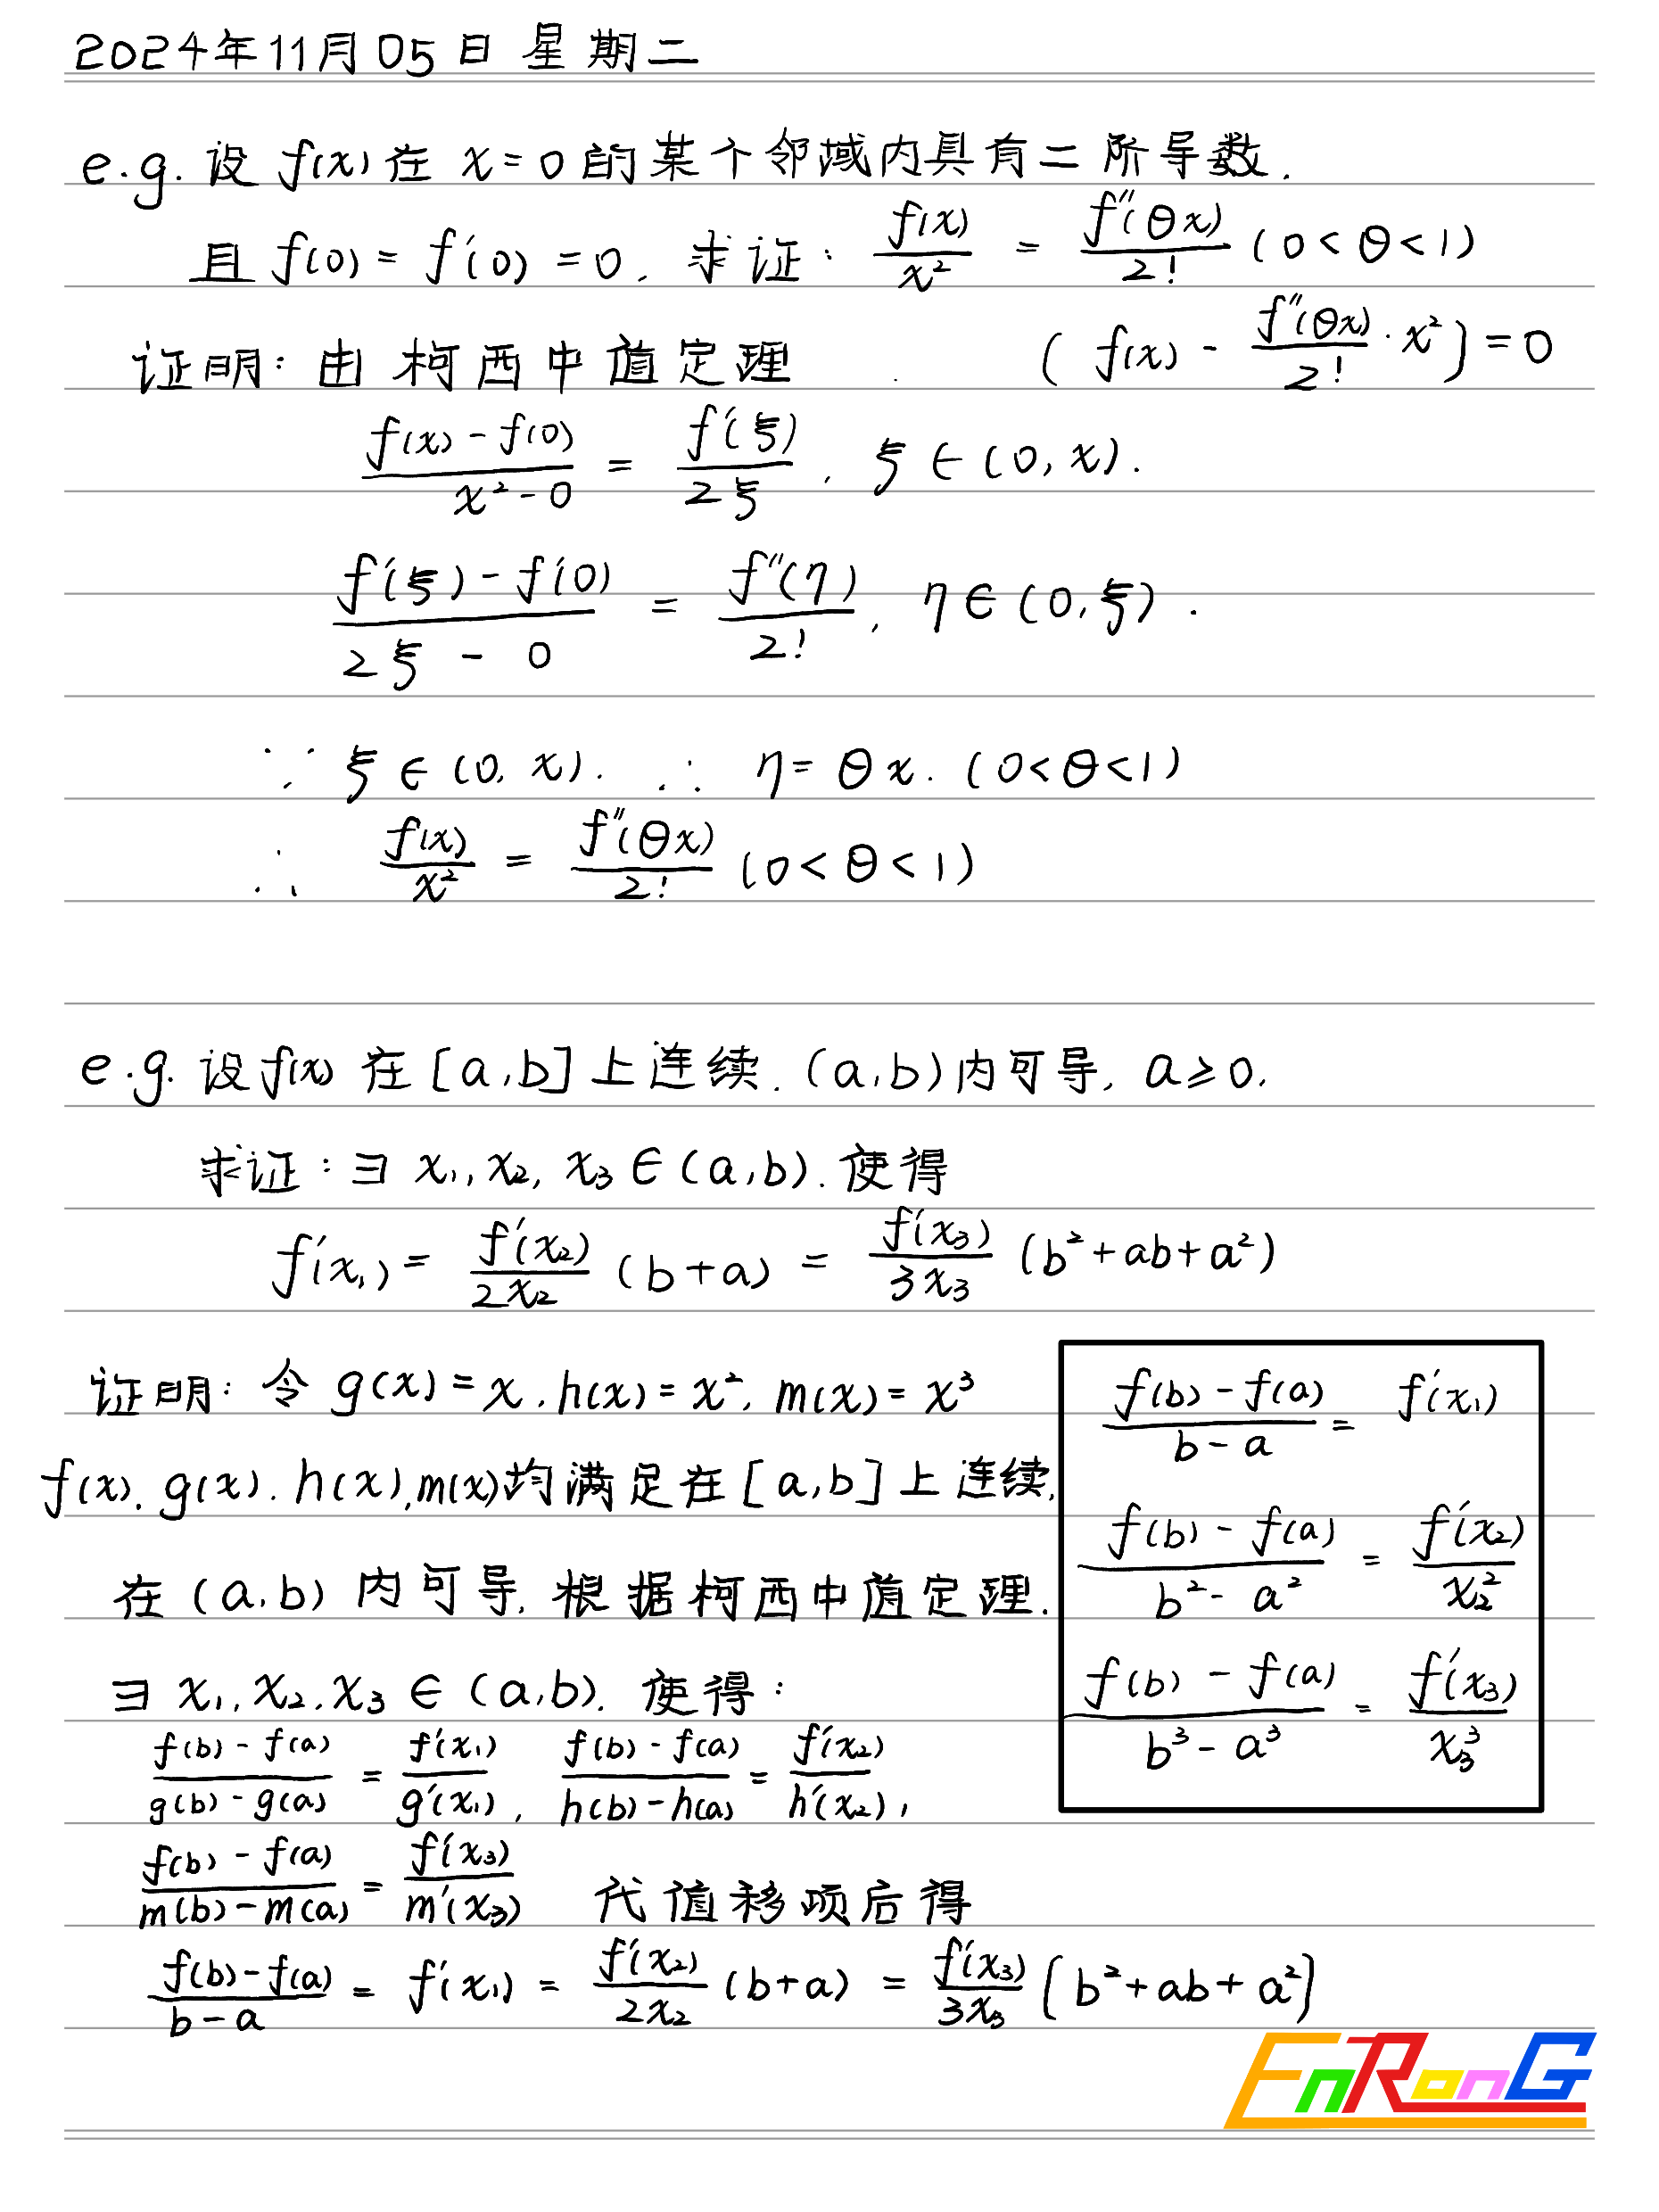 2024年11月05日 星期二
e.g. 设 f(x) 在 x=0 的某个邻域内具有二阶导数.
且 f(0) = f'(0) = 0. 求证: f(x)/x² = f''(θx)/2! (0<θ<1)
证明: 由柯西中值定理 . (f(x) - f''(θx)/2! · x²) = 0
(f(x) - f(0))/(x² - 0) = f'(ξ)/2ξ . ξ ∈ (0, x).
(f'(ξ) - f'(0))/(2ξ - 0) = f''(η)/2! , η ∈ (0, ξ) .
∵ ξ ∈ (0, x). ∴ η = θx. (0<θ<1)
∴ f(x)/x² = f''(θx)/2! (0<θ<1)
e.g. 设 f(x) 在 [a,b] 上连续. (a,b) 内可导, a ≥ 0,
求证: ∃ x₁, x₂, x₃ ∈ (a,b). 使得
f'(x₁) = f'(x₂)/2x₂ (b+a) = f'(x₃)/3x₃ (b²+ab+a²)
证明: 令 g(x) = x, h(x) = x², m(x) = x³
f(x). g(x). h(x), m(x) 均满足在 [a,b] 上连续,
在 (a,b) 内可导, 根据柯西中值定理.
∃ x₁, x₂, x₃ ∈ (a,b). 使得:
(f(b) - f(a))/(g(b) - g(a)) = f'(x₁)/g'(x₁) , (f(b) - f(a))/(h(b) - h(a)) = f'(x₂)/h'(x₂) ,
(f(b) - f(a))/(m(b) - m(a)) = f'(x₃)/m'(x₃) 代值移项后得
(f(b) - f(a))/(b - a) = f'(x₁) = f'(x₂)/2x₂ (b+a) = f'(x₃)/3x₃ (b²+ab+a²)
(f(b) - f(a))/(b - a) = f'(x₁)
(f(b) - f(a))/(b² - a²) = f'(x₂)/x₂²
(f(b) - f(a))/(b³ - a³) = f'(x₃)/x₃³
EnRonG